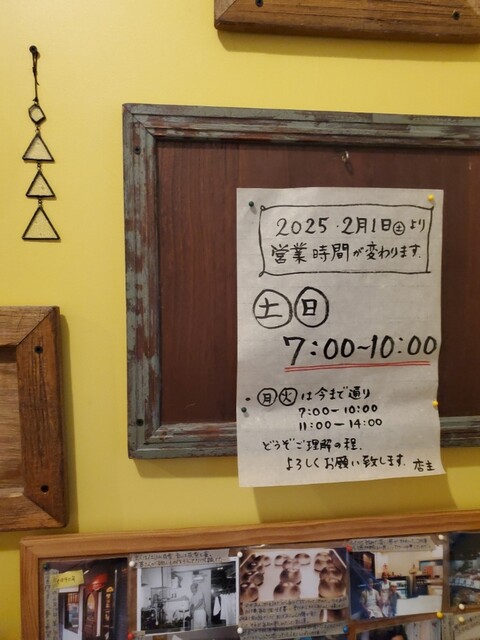 2025・2月1日㊏より
営業時間が変わります.
㊏ ㊐
7:00~10:00
㊊㊋は今まで通り
7:00-10:00
11:00-14:00
どうぞご理解の程.
よろしくお願い致します. 店主